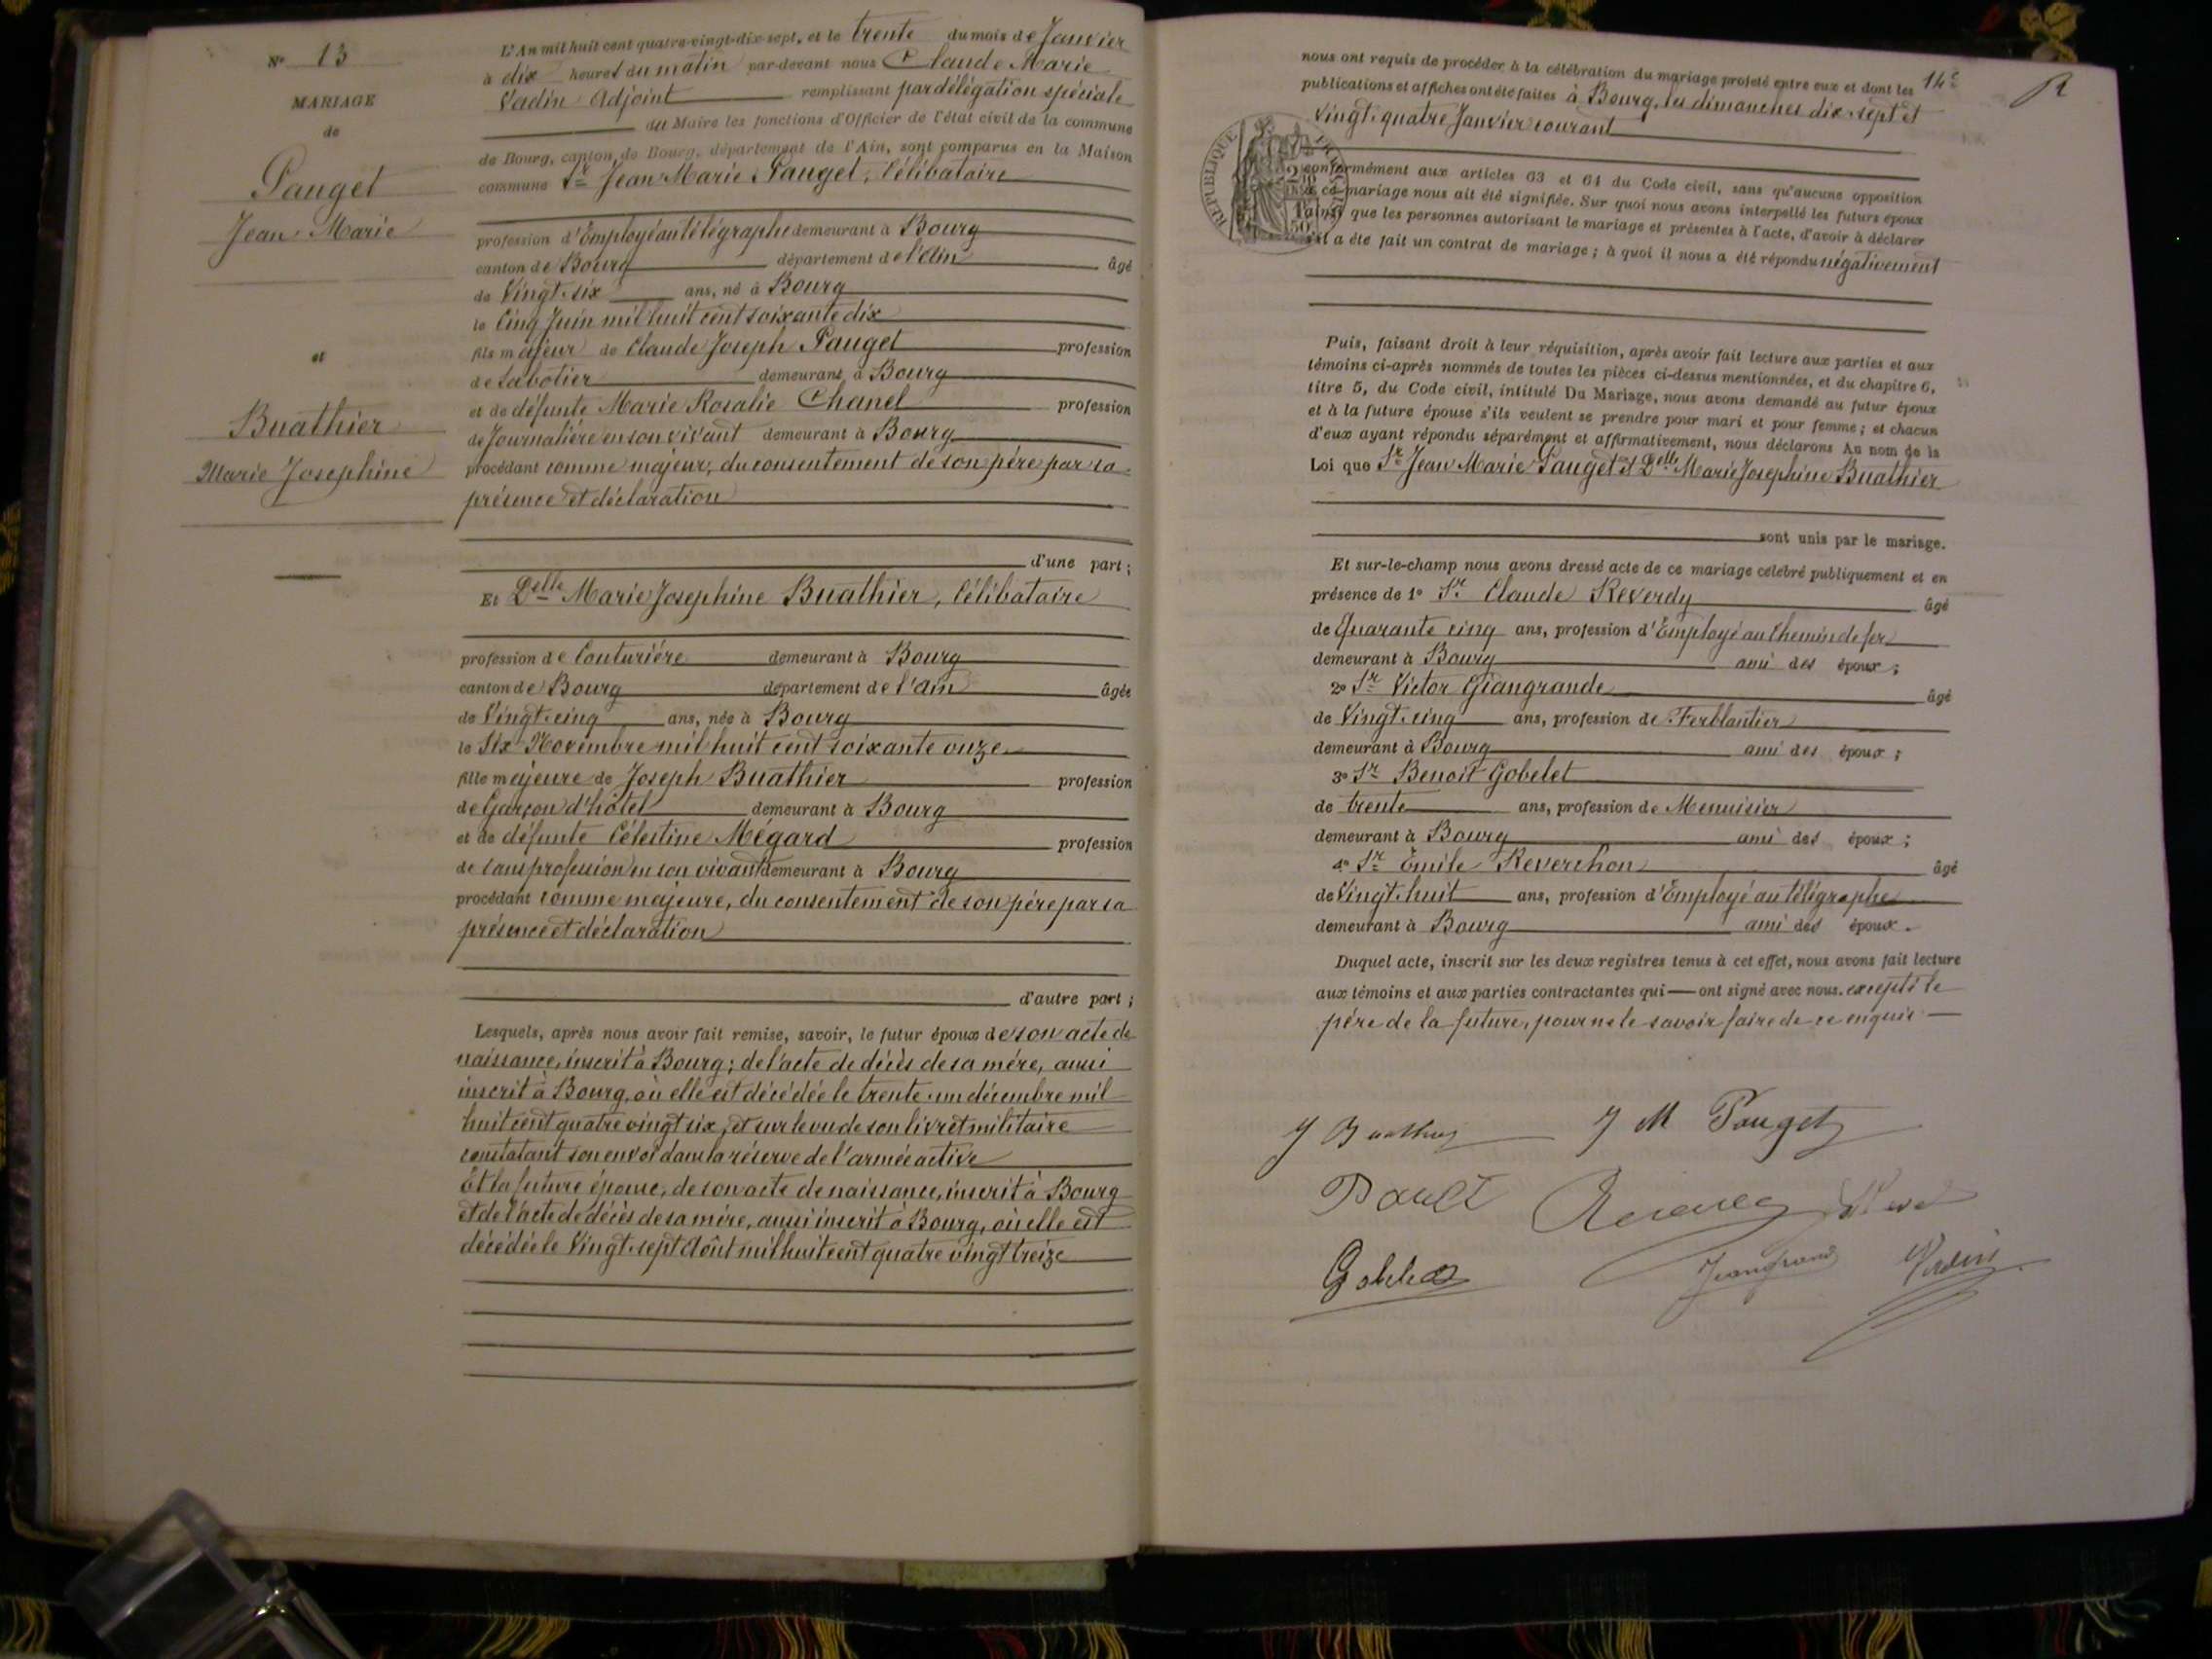 N° 13
MARIAGE
de
Pauget
Jean Marie
et
Buathier
Marie Josephine
L'An mil huit cent quatre-vingt-dix-sept, et le trente du mois de Janvier
à dix heures du matin par-devant nous Claude Marie
Vadin Adjoint remplissant par délégation spéciale
du Maire les fonctions d'Officier de l'état civil de la commune
de Bourg, canton de Bourg, département de l'Ain, sont comparus en la Maison
commune Sr Jean Marie Pauget, Célibataire
profession d'Employé au télégraphe demeurant à Bourg
canton de Bourg département de l'Ain âgé
de Vingt-six ans, né à Bourg
le Cinq Juin mil huit cent soixante dix
fils majeur de Claude Joseph Pauget profession
de Sabotier demeurant à Bourg
et de défunte Marie Rosalie Chanel profession
de Journalière en son vivant demeurant à Bourg
procédant comme majeur, du consentement de son père par sa
présence et déclaration
d'une part;
Et Delle Marie Josephine Buathier, Célibataire
profession de Couturière demeurant à Bourg
canton de Bourg département de l'Ain âgée
de Vingt-cinq ans, née à Bourg
le Six Novembre mil huit cent soixante onze
fille majeure de Joseph Buathier profession
de Garçon d'hôtel demeurant à Bourg
et de défunte Célestine Mégard profession
de sans profession en son vivant demeurant à Bourg
procédant comme majeure, du consentement de son père par sa
présence et déclaration
d'autre part;
Lesquels, après nous avoir fait remise, savoir, le futur époux de son acte de
naissance, inscrit à Bourg; de l'acte de décès de sa mère, aussi
inscrit à Bourg, où elle est décédée le trente-un décembre mil
huit cent quatre vingt six, et sur le vu de son livret militaire
constatant son envoi dans la réserve de l'armée active
Et la future épouse, de son acte de naissance, inscrit à Bourg
et de l'acte de décès de sa mère, aussi inscrit à Bourg, où elle est
décédée le Vingt-sept Août mil huit cent quatre vingt treize
14e
nous ont requis de procéder à la célébration du mariage projeté entre eux et dont les
publications et affiches ont été faites à Bourg, les dimanches dix-sept et
Vingt-quatre Janvier courant
RÉPUBLIQUE
conformément aux articles 63 et 64 du Code civil, sans qu'aucune opposition
à ce mariage nous ait été signifiée. Sur quoi nous avons interpellé les futurs époux
ainsi que les personnes autorisant le mariage et présentes à l'acte, d'avoir à déclarer
s'il a été fait un contrat de mariage; à quoi il nous a été répondu négativement
Puis, faisant droit à leur réquisition, après avoir fait lecture aux parties et aux
témoins ci-après nommés de toutes les pièces ci-dessus mentionnées, et du chapitre 6,
titre 5, du Code civil, intitulé Du Mariage, nous avons demandé au futur époux
et à la future épouse s'ils veulent se prendre pour mari et pour femme; et chacun
d'eux ayant répondu séparément et affirmativement, nous déclarons Au nom de la
Loi que Sr Jean Marie Pauget et Delle Marie Josephine Buathier
sont unis par le mariage.
Et sur-le-champ nous avons dressé acte de ce mariage célébré publiquement et en
présence de 1° Sr Claude Reverdy âgé
de Quarante cinq ans, profession d'Employé au Chemin de fer
demeurant à Bourg ami des époux;
2° Sr Victor Giangrande âgé
de Vingt-cinq ans, profession de Ferblantier
demeurant à Bourg ami des époux;
3° Sr Benoit Gobelet
de trente ans, profession de Menuisier
demeurant à Bourg ami des époux;
4° Sr Émile Reverchon âgé
de Vingt-huit ans, profession d'Employé au télégraphe
demeurant à Bourg ami des époux.
Duquel acte, inscrit sur les deux registres tenus à cet effet, nous avons fait lecture
aux témoins et aux parties contractantes qui ont signé avec nous. excepté le
père de la future, pour ne le savoir faire de ce enquis
J Buathier J M Pauget